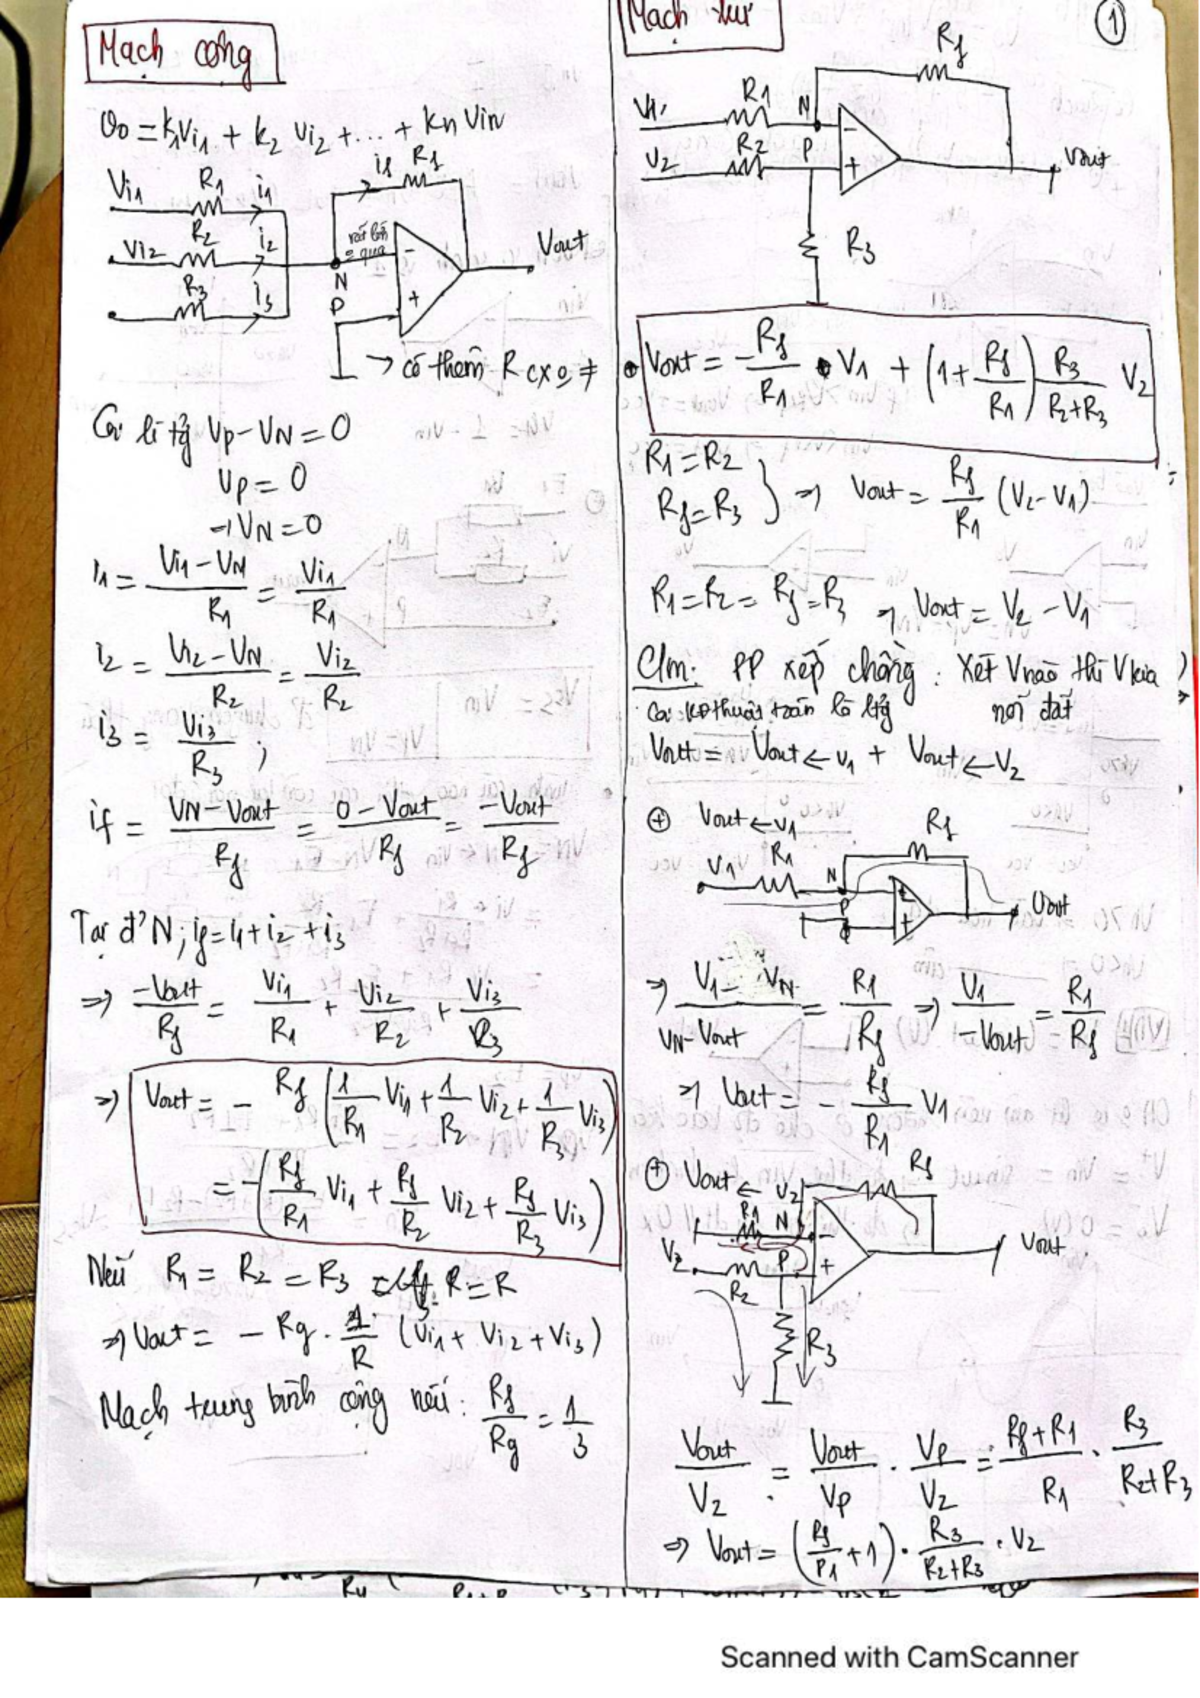 Mạch cộng
V0 = k1Vi1 + k2 Vi2 + ... + kn Vin
Vi1 R1 i1 if Rf
Vi2 R2 i2 Vout
R3 i3 N
P
- +
→ có thêm R cx o ≠
Coi lí tg Vp - VN = 0
Vp = 0
⇒ VN = 0
i1 = (Vi1 - VN)/R1 = Vi1/R1
i2 = (Vi2 - VN)/R2 = Vi2/R2
i3 = Vi3/R3 ;
if = (VN - Vout)/Rf = (0 - Vout)/Rf = -Vout/Rf
Tại đ' N; if = i1 + i2 + i3
⇒ -Vout/Rf = Vi1/R1 + Vi2/R2 + Vi3/R3
⇒ Vout = - Rf (1/R1 Vi1 + 1/R2 Vi2 + 1/R3 Vi3)
= -(Rf/R1 Vi1 + Rf/R2 Vi2 + Rf/R3 Vi3)
Nếu R1 = R2 = R3 = R
⇒ Vout = - Rg . 1/R (Vi1 + Vi2 + Vi3)
Mạch trung bình cộng nếu: Rf/Rg = 1/3
Mạch trừ
1
Rf
V1 R1 N -
V2 R2 P + Vout
R3
Vout = -Rf/R1 . V1 + (1 + Rf/R1) R3/(R2+R3) V2
R1 = R2
Rf = R3 } ⇒ Vout = Rf/R1 (V2 - V1)
R1 = R2 = Rf = R3 ⇒ Vout = V2 - V1
Clm: PP xếp chồng: Xét V nào thì V kia
nối đất
Coi KĐ thuật toán là ltg
Vout = Vout ← V1 + Vout ← V2
⊕ Vout ← V1
Rf
V1 R1 N
P + Vout
⇒ (V1 - VN)/(VN - Vout) = R1/Rf ⇒ V1/-Vout = R1/Rf
⇒ Vout = - Rf/R1 V1
⊕ Vout ← V2
Rf
R1 N -
V2 R2 P + Vout
R3
Vout/V2 = Vout/Vp . Vp/V2 = (Rf+R1)/R1 . R3/(R2+R3)
⇒ Vout = (Rf/R1 + 1) . R3/(R2+R3) . V2
Scanned with CamScanner